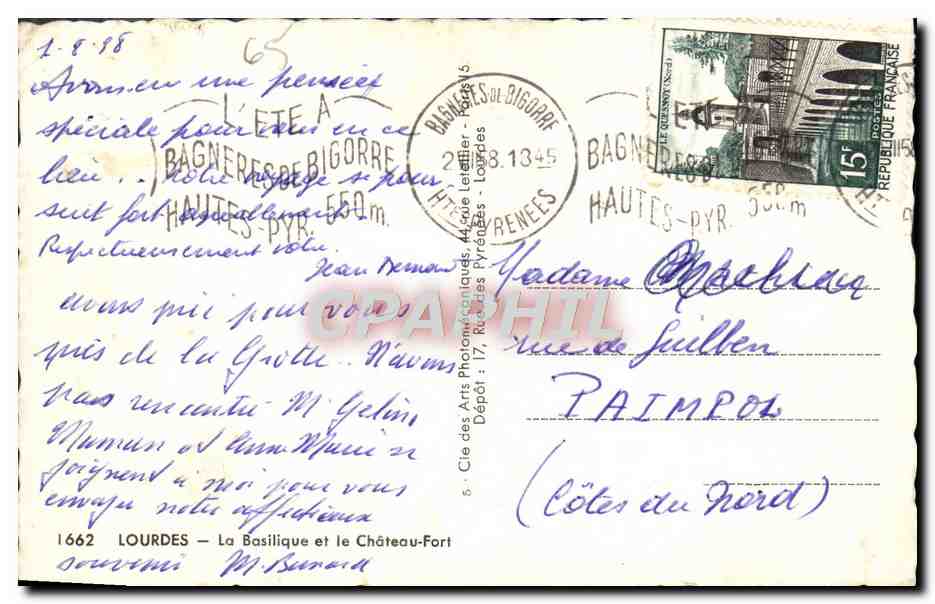 1-8-58
65
Avons eu une pensée
spéciale pour vous en ce
lieu.. Notre voyage se pour
suit fort agréablement
Respectueusement vôtre.
Jean Bernard
avons prié pour vous
près de la Grotte.. N'avons
pas rencontré M. Gelin,
Maman et Anne Marie se
joignent à moi pour vous
envoyer notre affectueux
1662 LOURDES — La Basilique et le Château-Fort
souvenir M. Bernard
L'ÉTÉ A
BAGNERES DE BIGORRE
HAUTES-PYR. 550m.
BAGNERES DE BIGORRE
18 45
HTES PYRENEES
BAGNERES
HAUTES-PYR. 550m
LE QUESNOY (Nord)
15F
POSTES
REPUBLIQUE FRANÇAISE
s - Cie des Arts Photomécaniques, 44, rue Letellier - Paris 15
Dépôt : 17, Rue des Pyrénées - Lourdes
CPAPHIL
Madame
rue de Guilben
PAIMPOL
(Côtes du Nord)